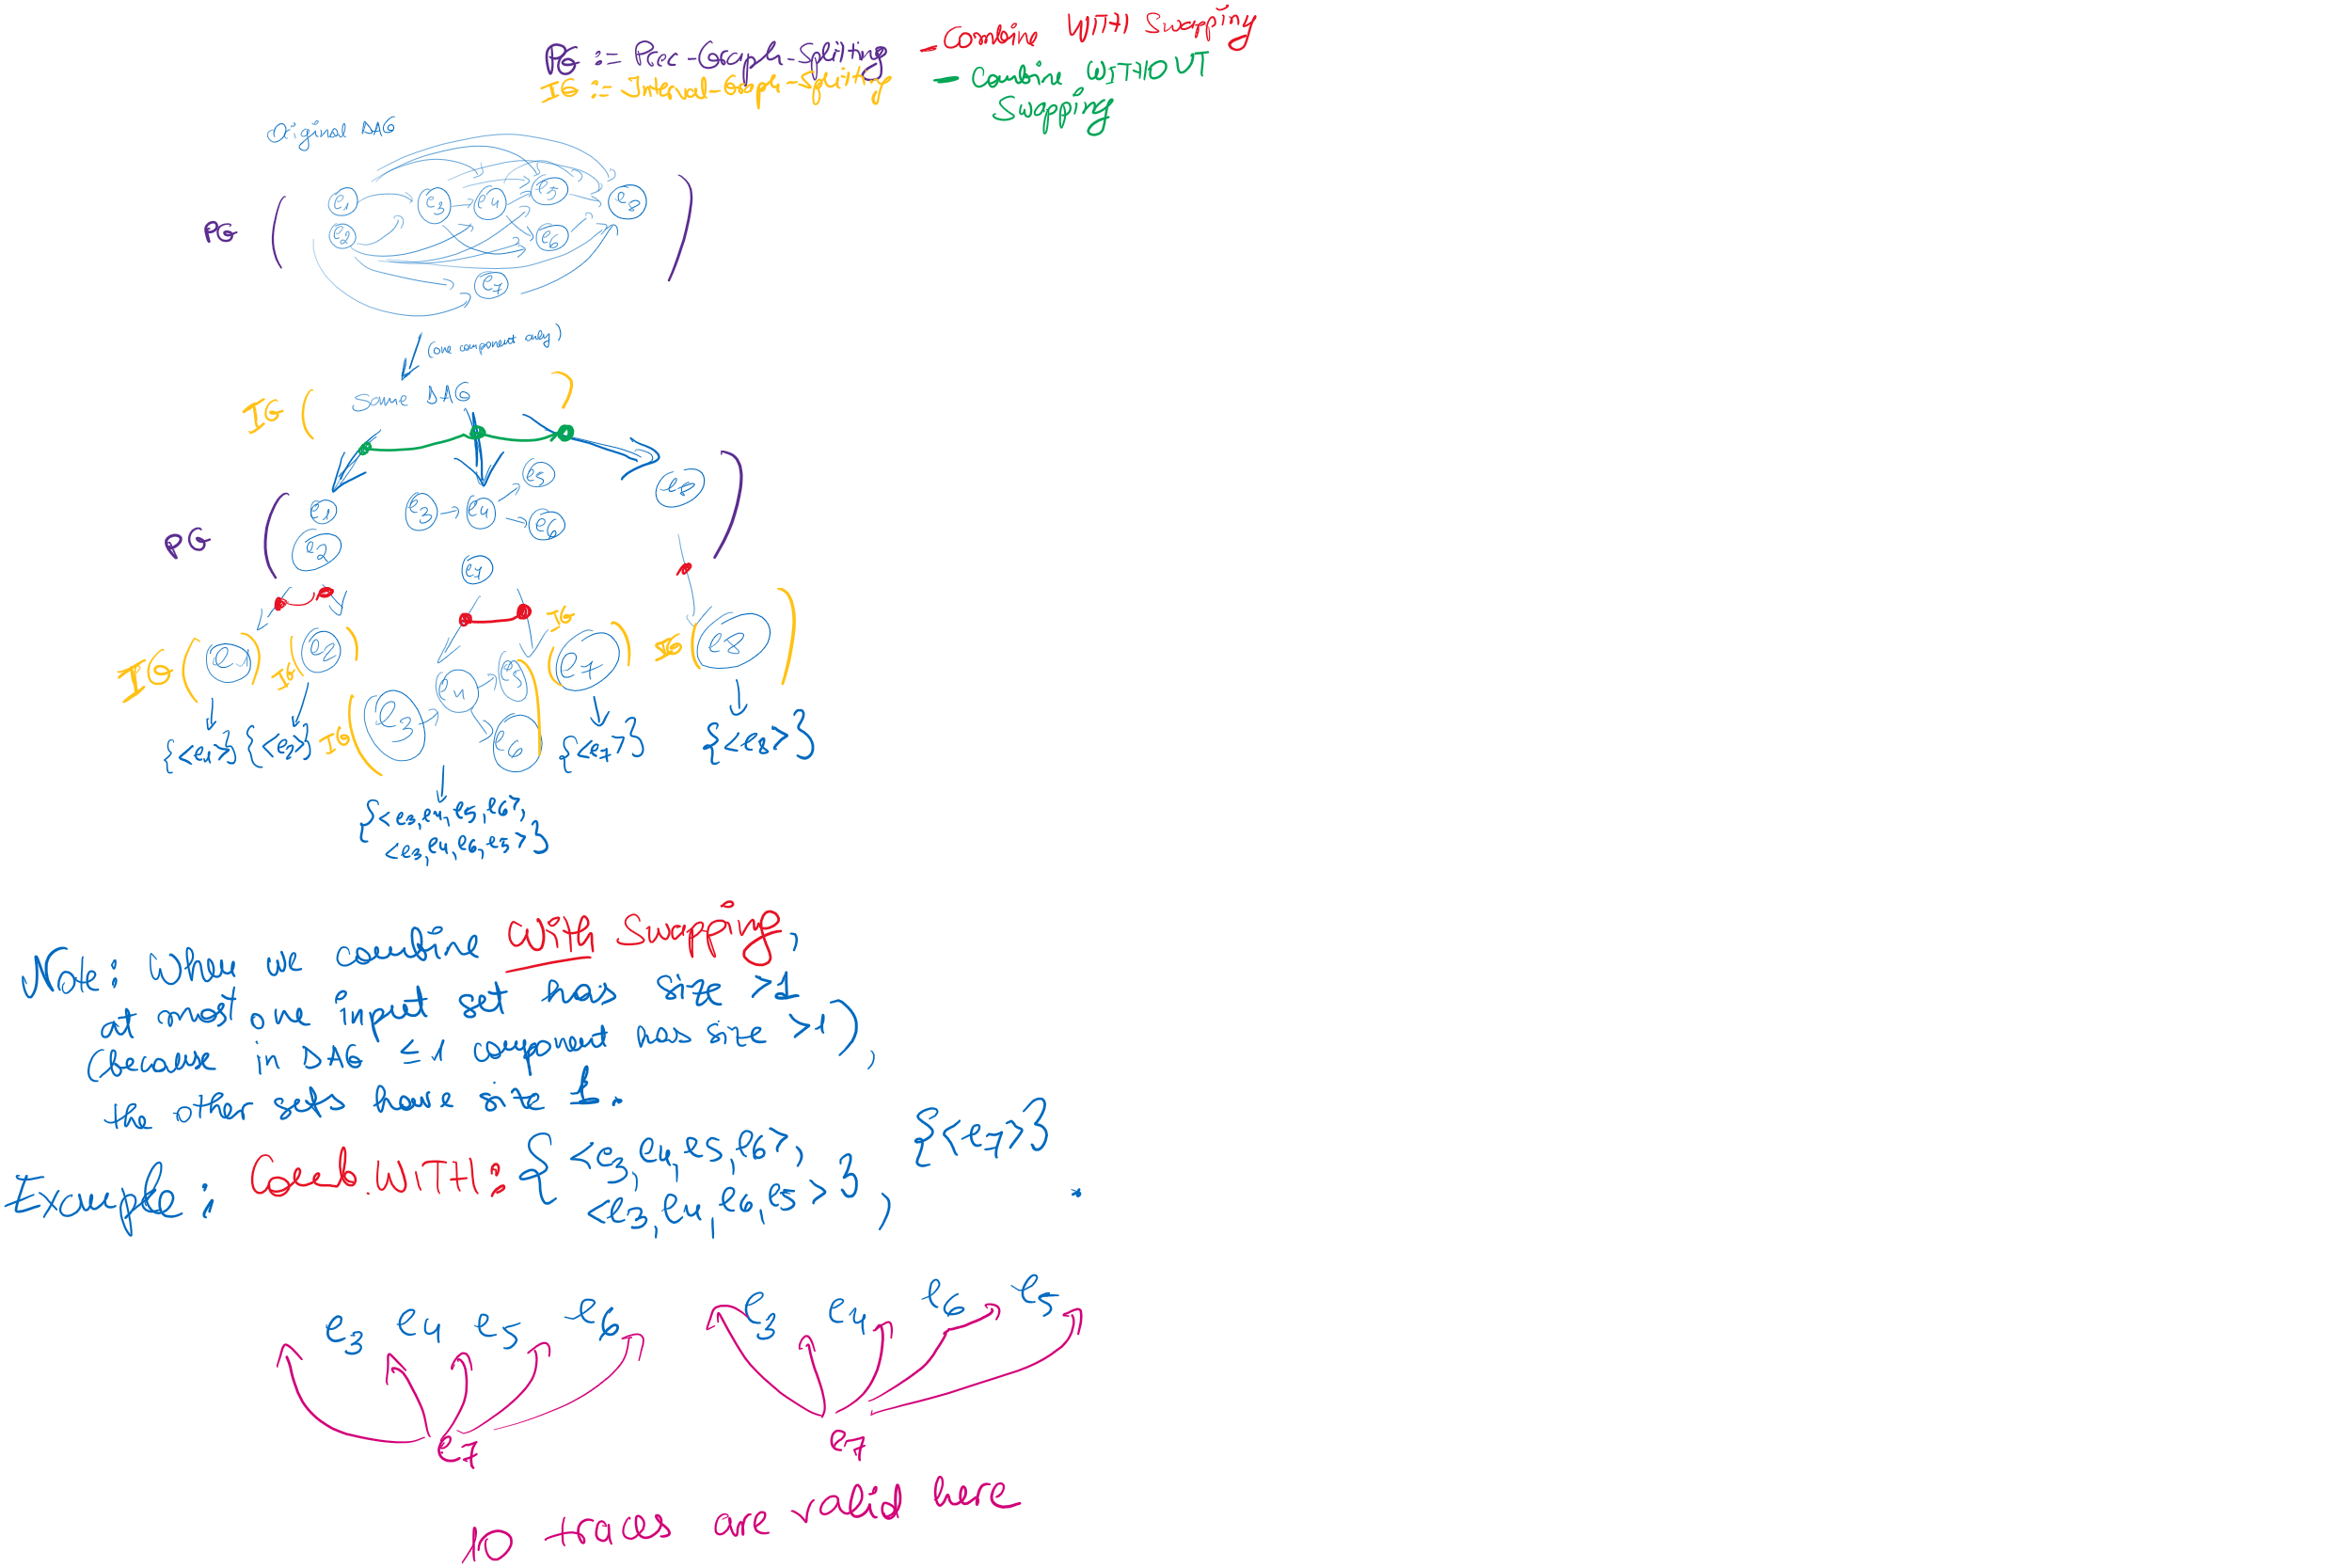 PG ::= Prec-Graph-Splitting
IG ::= Interval-Graph-Splitting
- Combine WITH Swapping
- Combine WITHOUT
Swapping
Original DAG
PG (
e1 e3 e4 e5 e8
e2 e6
e7
)
(one component only)
IG ( Same DAG )
PG (
e1 e3 e4 e5 e8
e2 e6
e7
)
IG (e1) IG (e2) IG (e3 e4 e5 e6) IG (e7) IG (e8)
{<e1>} {<e2>} {<e7>} {<e8>}
{<e3,e4,e5,e6>,
<e3,e4,e6,e5>}
Note: When we combine With Swapping,
at most one input set has size >1
(because in DAG ≤1 component has size >1),
the other sets have size 1.
Example: Comb. WITH: {<e3,e4,e5,e6>, {<e7>}
<e3,e4,e6,e5>}, .
e3 e4 e5 e6 e3 e4 e6 e5
e7 e7
10 traces are valid here